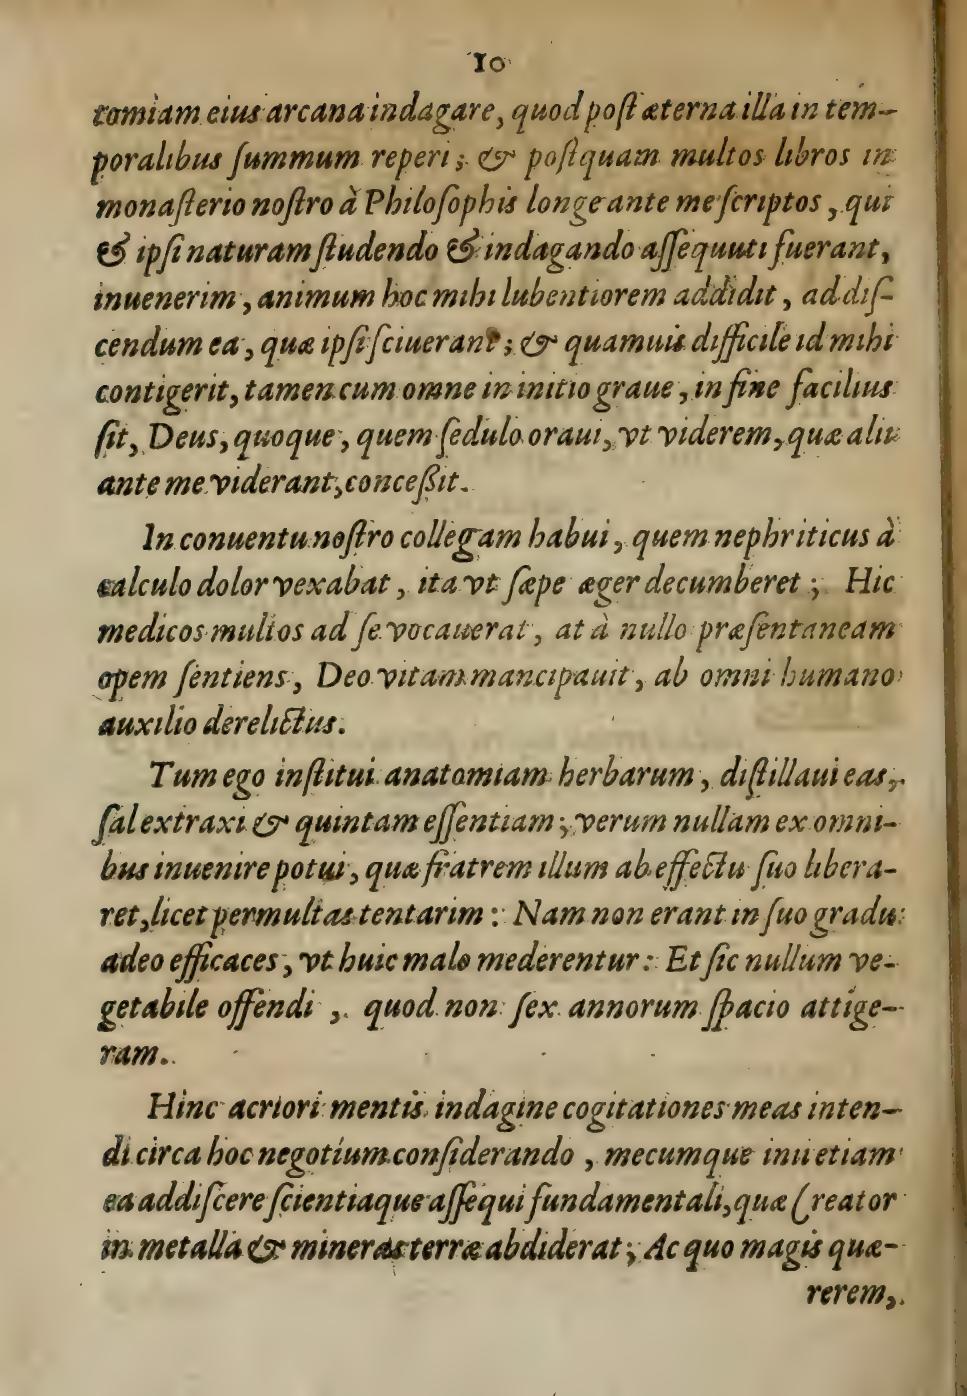 10
tomiam eius arcana indagare, quod post æterna illa in tem-
poralibus summum reperi; & postquam multos libros in
monasterio nostro à Philosophis longe ante me scriptos, qui
& ipsi naturam studendo & indagando assequuti fuerant,
inuenerim, animum hoc mihi lubentiorem addidit, ad dis-
cendum ea, quæ ipsi sciuerant; & quamuis difficile id mihi
contigerit, tamen cum omne in initio graue, in fine facilius
fit, Deus, quoque, quem sedulo oraui, vt viderem, quæ alii
ante me viderant, concessit.
In conuentu nostro collegam habui, quem nephriticus à
calculo dolor vexabat, ita vt sæpe æger decumberet; Hic
medicos multos ad se vocauerat, at à nullo præsentaneam
opem sentiens, Deo vitam mancipauit, ab omni humano
auxilio derelictus.
Tum ego institui anatomiam herbarum, distillaui eas,
sal extraxi & quintam essentiam; verum nullam ex omni-
bus inuenire potui, quæ fratrem illum ab effectu suo libera-
ret, licet permultas tentarim: Nam non erant in suo gradu
adeo efficaces, vt huic malo mederentur: Et sic nullum ve-
getabile offendi, quod non sex annorum spacio attige-
ram.
Hinc acriori mentis indagine cogitationes meas inten-
di circa hoc negotium considerando, mecumque inii etiam
ea addiscere scientiaque assequi fundamentali, quæ Creator
in metalla & mineras terræ abdiderat; Ac quo magis quæ-
rerem,